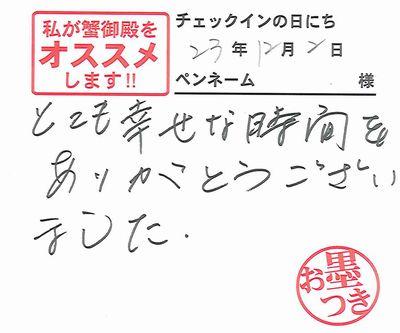 私が蟹御殿を
オススメ
します!!
チェックインの日にち
23年12月2日
ペンネーム 様
とても幸せな時間を
ありがとうござい
ました.
お墨つき